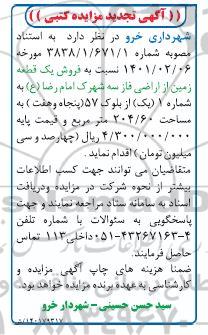 ((آگهی تجدید مزایده کتبی))
شهرداری خرو در نظر دارد به استناد
مصوبه شماره ۳۸۳۸/۱/۶۷۱/۱ مورخه
۱۴۰۱/۰۲/۰۶ نسبت به فروش یک قطعه
زمین از اراضی فاز سه شهرک امام رضا (ع) به
شماره ۱ (یک) از بلوک ۵۷ (پنجاه وهفت) به
مساحت ۲۰۴/۶۰ متر مربع و قیمت پایه
۴/۳۰۰/۰۰۰/۰۰۰ ریال (چهارصد و سی
میلیون تومان) اقدام نماید.
متقاضیان می توانند جهت کسب اطلاعات
بیشتر از نحوه شرکت در مزایده ودریافت
اسناد به سامانه ستاد مراجعه نمایند و جهت
پاسخگویی به سئوالات با شماره تلفن
۴-۰۵۱۴۳۲۶۷۱۶۳ داخلی ۱۱۳ تماس
حاصل فرمایند.
ضمنا هزینه های چاپ آگهی مزایده و
کارشناسی به عهده برنده مزایده خواهد بود.
سید حسن حسینی - شهردار خرو